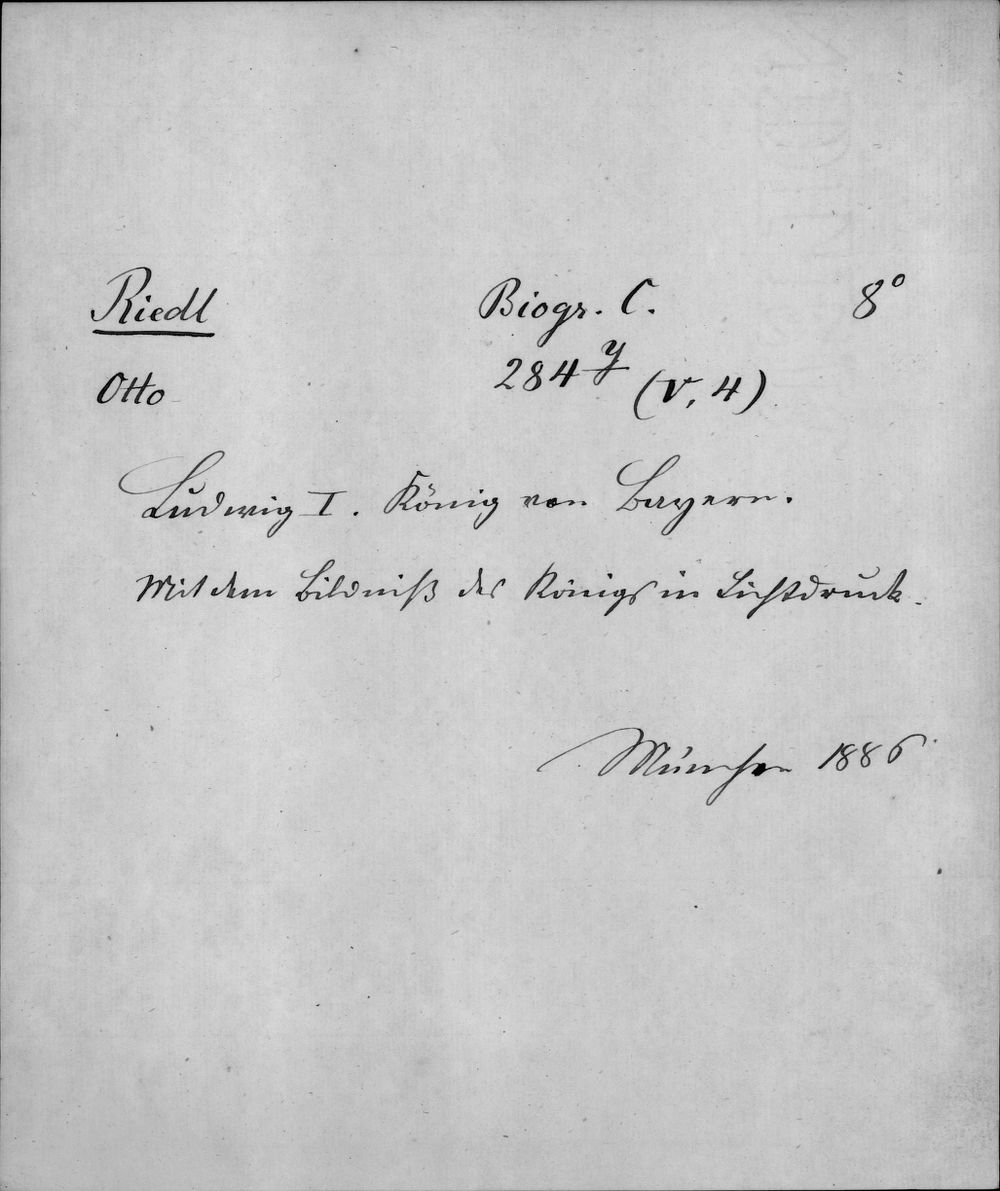 Riedl Biogr. C. 8°
Otto 284 y (V, 4)
Ludwig I. König von Bayern.
Mit dem Bildniß des Königs in Lichtdruck.
München 1886